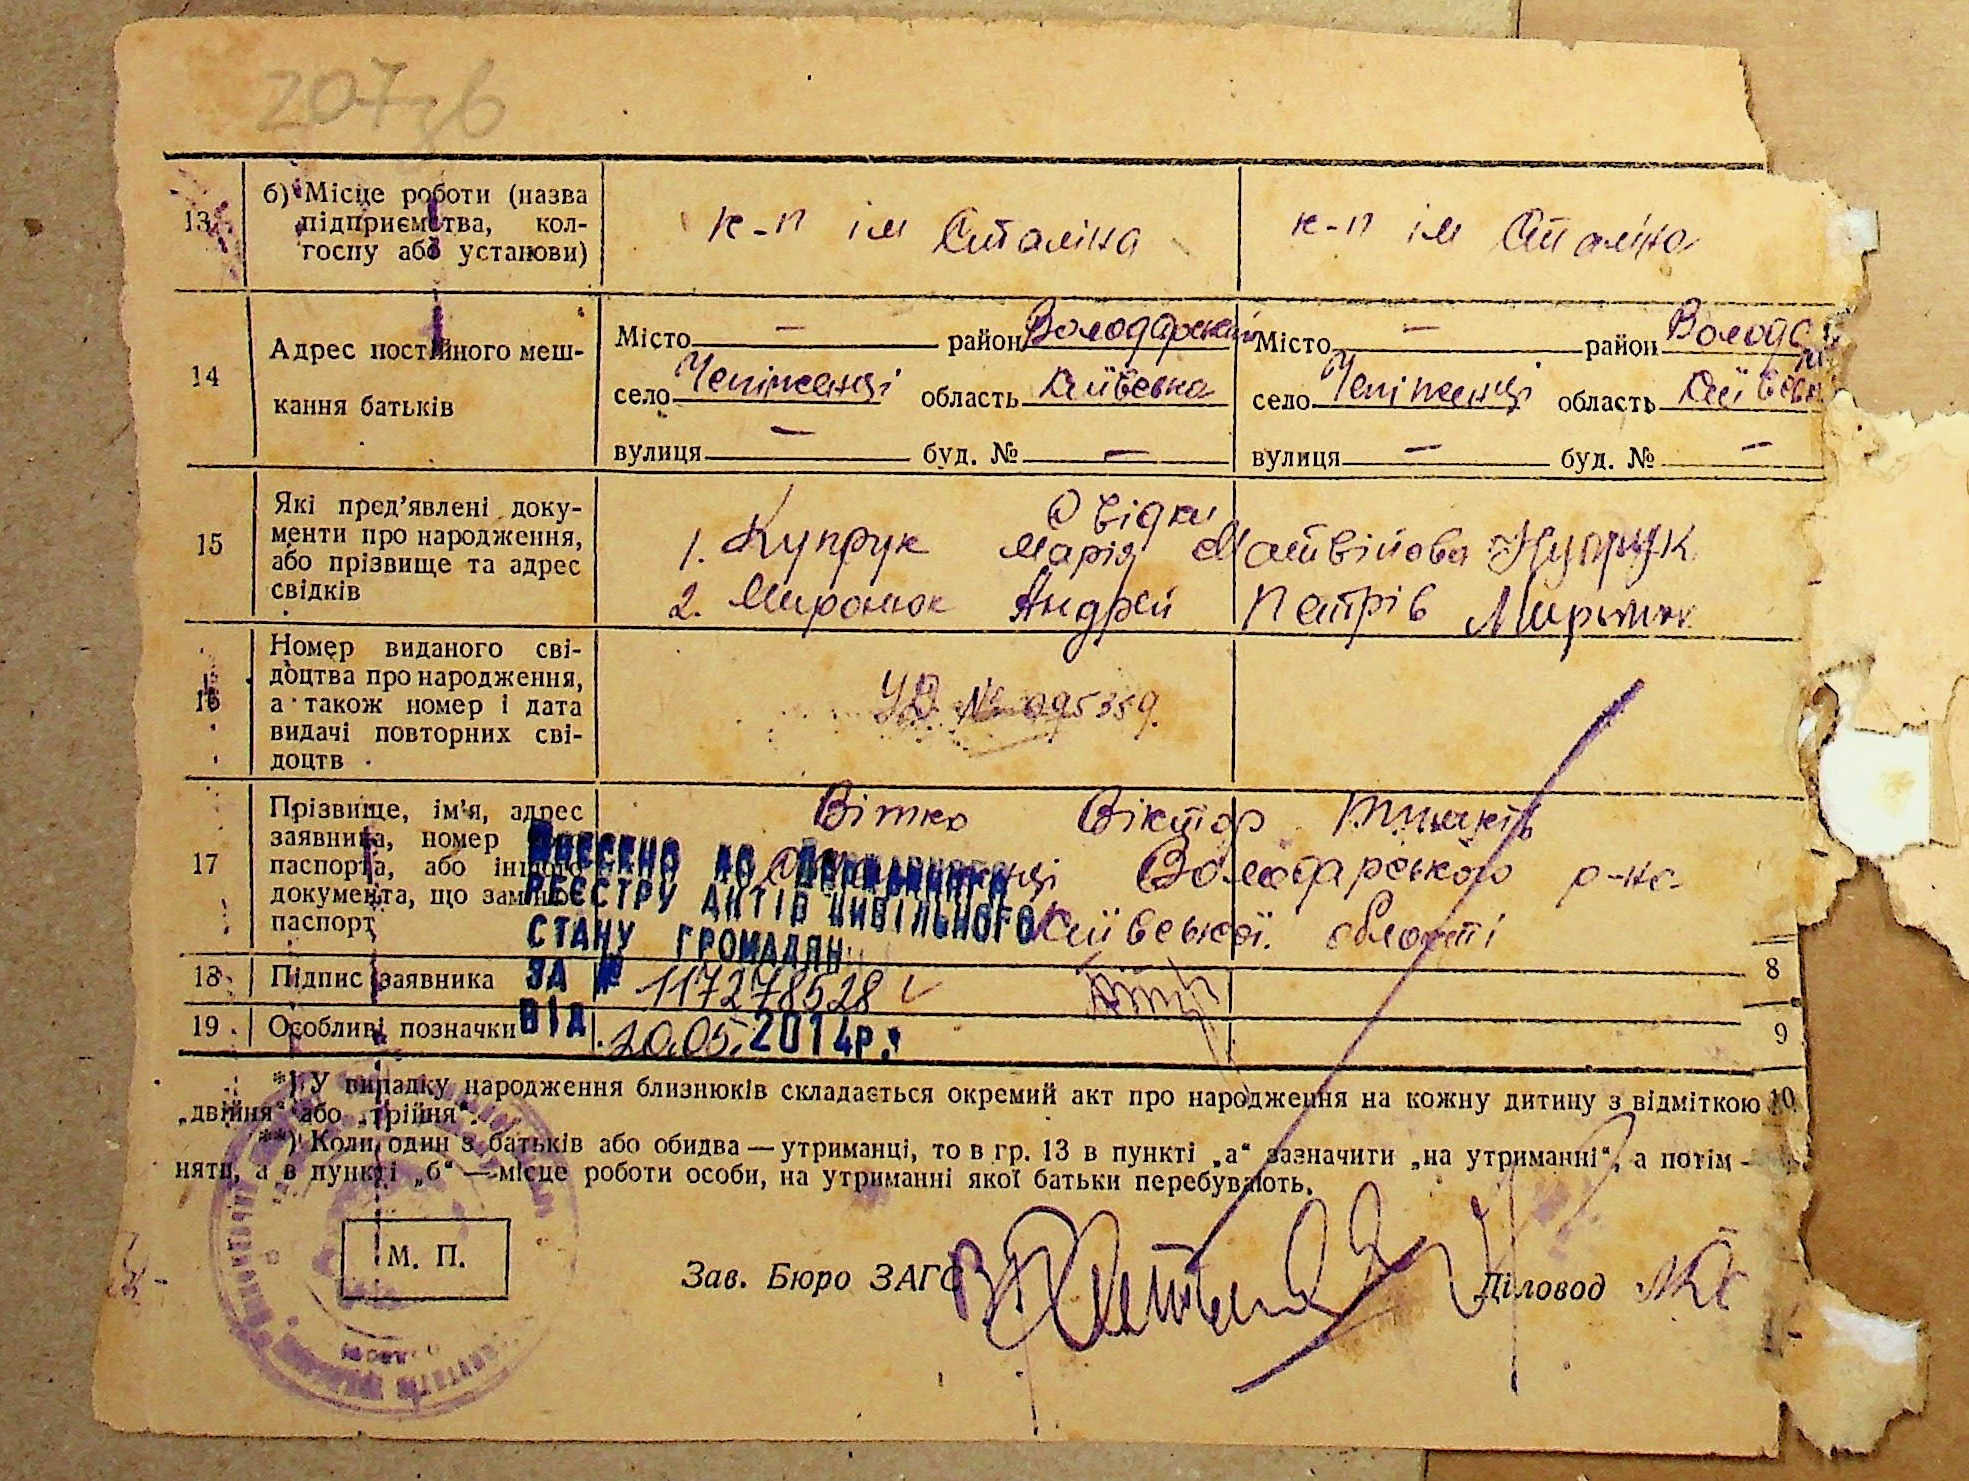 207зв
13
б) Місце роботи (назва
підприємства, кол-
госпу або установи)
к-п ім Сталіна
к-п ім Сталіна
14
Адрес постійного меш-
кання батьків
Місто — район Володарський
село Чепіжинці область Київська
вулиця — буд. № —
Місто — район
село Чепіжинці область
вулиця — буд. № —
15
Які пред'явлені доку-
менти про народження,
або прізвище та адрес
свідків
Свідки
1. Купрук Марія Матвійова Купрук
2. Миронюк Андрей Петрів Миронюк
16
Номер виданого сві-
доцтва про народження,
а також номер і дата
видачі повторних сві-
доцтв
№ 095359.
17
Прізвище, ім'я, адрес
заявника, номер
паспорта, або іншого
документа, що замінює
паспорт
Вітко Віктор
Володарського р-на
Київської області
ВНЕСЕНО ДО ДЕРЖАВНОГО
РЕЄСТРУ АКТІВ ЦИВІЛЬНОГО
СТАНУ ГРОМАДЯН
ЗА № 117278528
ВІД 20.05.2014р.
18
Підпис заявника
8
19
Особливі позначки
9
*) У випадку народження близнюків складається окремий акт про народження на кожну дитину з відміткою
10
„двійня“ або „трійня“.
**) Коли один з батьків або обидва — утриманці, то в гр. 13 в пункті „а“ зазначити „на утриманні“, а потім
няти, а в пункті „б“ — місце роботи особи, на утриманні якої батьки перебувають.
М. П.
Зав. Бюро ЗАГС
Діловод